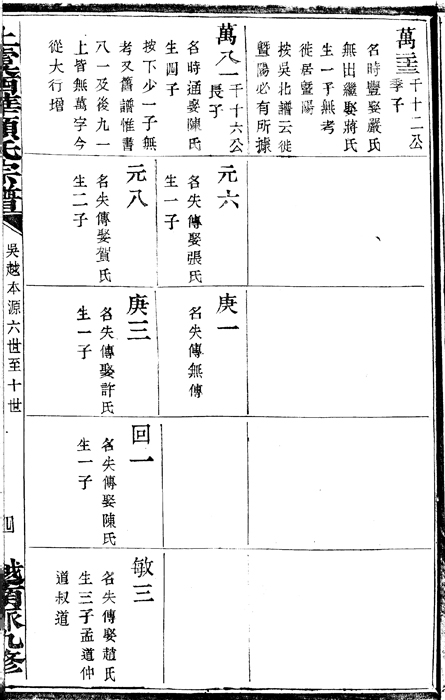 萬三 千十二公
季子
名時豐娶嚴氏
無出繼娶蔣氏
生一子無考
徙居暨陽
按吳北譜云徙
暨陽必有所據
萬八一 千十六公
長子
名時通娶陳氏
生四子
按下少一子無
考又舊譜惟書
八一及後九一
上皆無萬字今
從大行增
元六
名失傳娶張氏
生一子
元八
名失傳娶賀氏
生二子
庚一
名失傳無傳
庚三
名失傳娶許氏
生一子
回一
名失傳娶陳氏
生一子
敏三
名失傳娶趙氏
生三子孟道仲
道叔道
吳越本源六世至十世
四
越項派九修